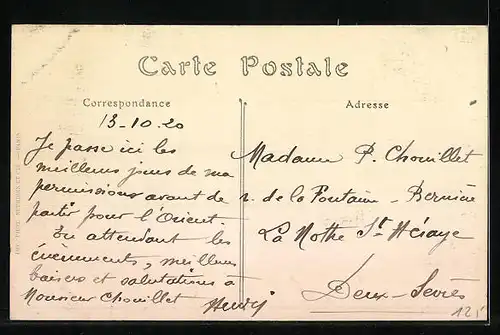 Carte Postale
Correspondance
13-10-20
Je passe ici les
meilleurs jours de ma
permission avant de
partir pour l'Orient.
En attendant les
évènements, meilleurs
baisers et salutations à
Monsieur Chouillet
Henri
Adresse
Madame P. Chouillet
r. de la Fontaine - Bernière
La Mothe St Héraye
Deux-Sèvres